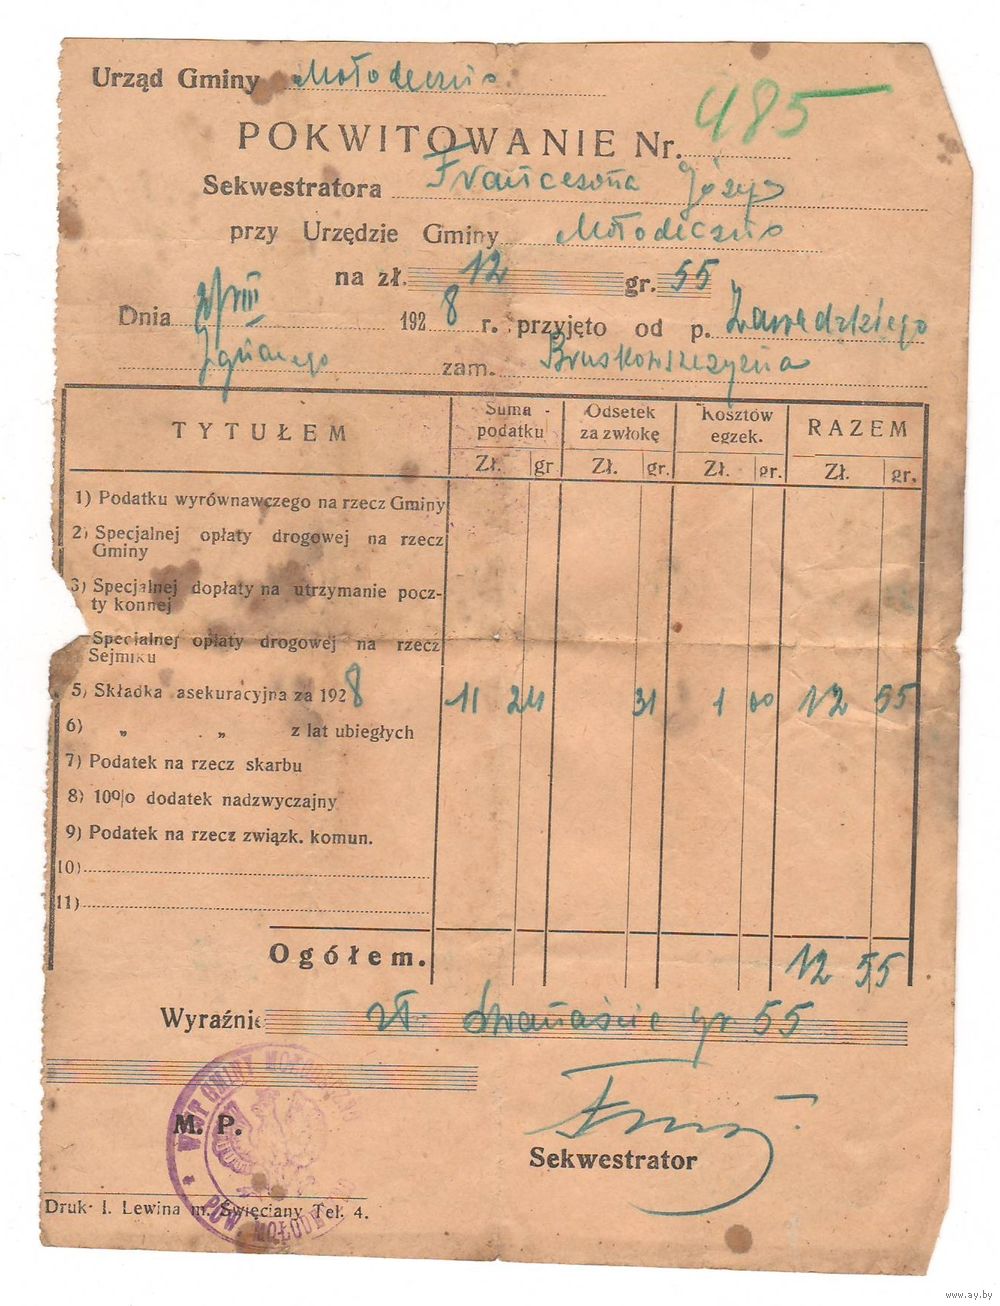 Urząd Gminy Mołodeczno
POKWITOWANIE Nr. 485
Sekwestratora
przy Urzędzie Gminy Mołodeczno
na zł. 12 gr. 55
Dnia VIII 1928 r. przyjęto od p. Zawadzkiego
Ignacego zam.
TYTUŁEM Suma podatku Odsetek za zwłokę Kosztów egzek. RAZEM
Zł. gr Zł. gr. Zł. gr. Zł. gr.
1) Podatku wyrównawczego na rzecz Gminy
2) Specjalnej opłaty drogowej na rzecz
Gminy
3) Specjalnej dopłaty na utrzymanie pocz-
ty konnej
Specjalnej opłaty drogowej na rzecz
Sejmiku
5) Składka asekuracyjna za 1928 11 24 31 1 00 12 55
6) „ „ z lat ubiegłych
7) Podatek na rzecz skarbu
8) 10% dodatek nadzwyczajny
9) Podatek na rzecz związk. komun.
10)
11)
Ogółem. 12 55
Wyraźnie zł. dwanaście gr 55
WÓJT GMINY MOŁODECZNO
POW. MOŁODE
M. P.
Sekwestrator
Druk. I. Lewina m. Święciany Tel. 4.
www.ay.by